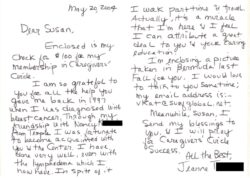 May 20, 2004
Dear Susan,
Enclosed is my
check for $100 for my
membership in Caregivers'
Circle.
I am so grateful to
you for all the help you
gave me back in 1997
when I was diagnosed with
breast cancer. Through my
friendship with Nancy
I was fortunate
to become acquainted with
you & the Center. I have
done very well, even with
the lymphedema which I
now have. In spite of it
I work part-time & travel.
Actually, it's a miracle
that I'm here & I feel
I can attribute a great
deal to you & your caring
education.
I'm enclosing a picture
taken in Bermuda last
Fall for you. I would love
to talk to you sometime;
my email address is:
global.net.
Meanwhile, Susan, I
send my blessings to
you & I will pray
for Caregivers' Circle
success.
All the Best,
Jeanne